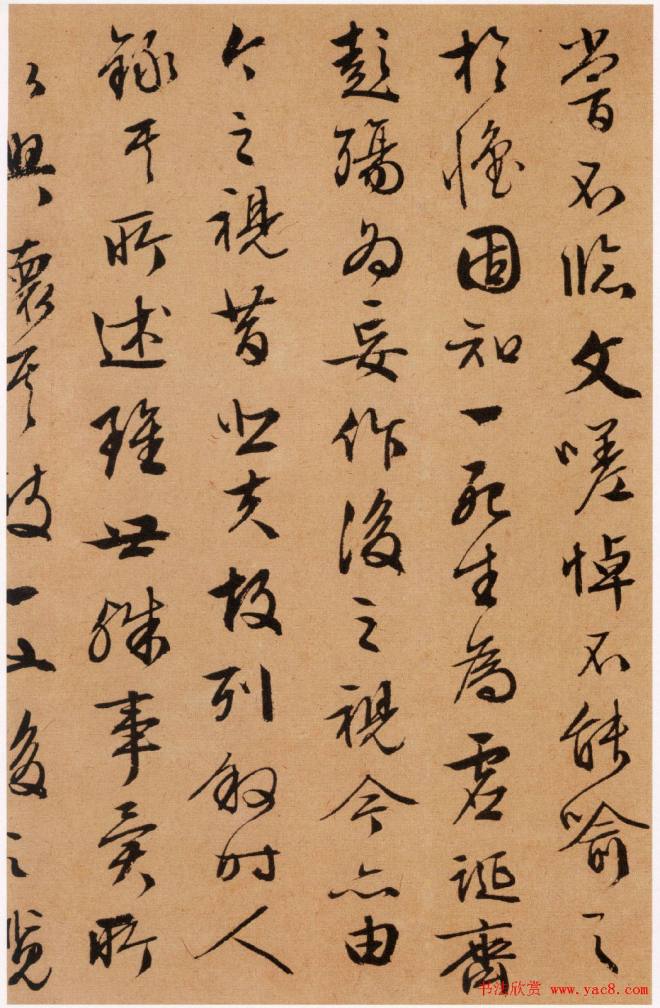 嘗不臨文嗟悼不能喻之
於懷固知一死生為虛誕齊
彭殤為妄作後之視今亦由
今之視昔悲夫故列叙時人
錄其所述雖世殊事異所
以興懷其致一也後之覽
书法欣赏 www.yac8.com